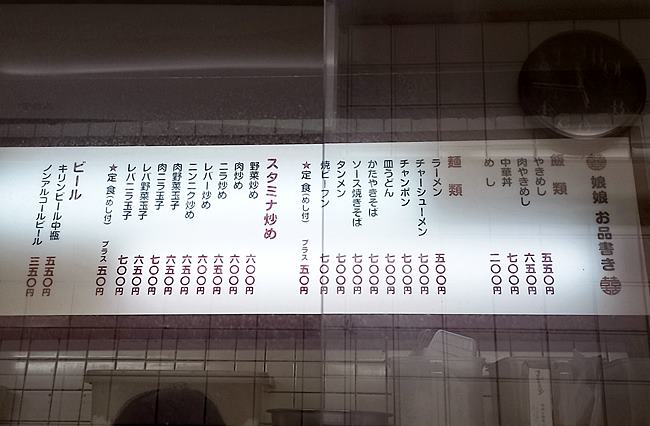 娘娘 お品書き
飯類
やきめし 五五〇円
肉やきめし 六五〇円
中華丼 七〇〇円
めし 二〇〇円
麺類
ラーメン 五〇〇円
チャーシューメン 七〇〇円
チャンポン 七〇〇円
皿うどん 七〇〇円
かたやきそば 七〇〇円
ソース焼きそば 七〇〇円
タンメン 七〇〇円
焼ビーフン 七〇〇円
★定食(めし付) プラス 五〇円
スタミナ炒め
野菜炒め 六〇〇円
肉炒め 六〇〇円
ニラ炒め 六五〇円
レバー炒め 六〇〇円
ニンニク炒め 六五〇円
肉野菜玉子 六五〇円
肉ニラ玉子 七〇〇円
レバ野菜玉子 六五〇円
レバニラ玉子 七〇〇円
★定食(めし付) プラス 五〇円
ビール
キリンビール中瓶 五五〇円
ノンアルコールビール 三五〇円